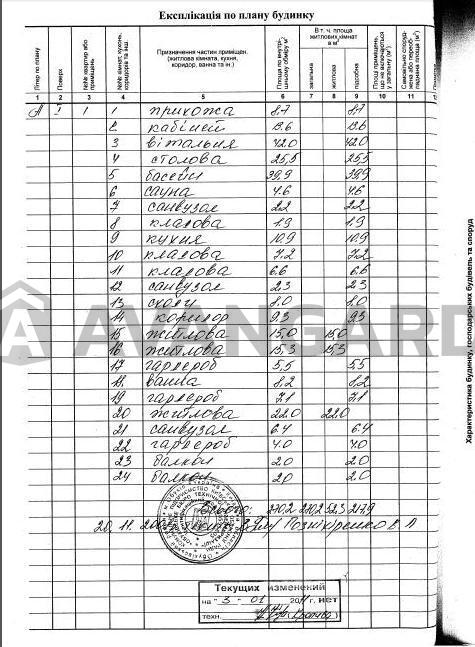 Експлікація по плану будинку
Літер по плану
Поверх
№№ квартир або приміщень
№№ кімнат, кухонь, коридорів та інш.
Призначення частин приміщен. (житлова кімната, кухня, коридор, ванна та ін.)
Площа по внутрішньому обміру м²
В т. ч. площа житлових кімнат в м²
загальна
житлова
підсобна
1 2 3 4 5 6 7 8 9 10 11
А 1 1 1 прихожа 8,7 8,7
2 кабінет 13.6 13.6
3 вітальня 42.0 42.0
4 столова 25,5 25,5
5 басейн 39,9 39,9
6 сауна 4.6 4.6
7 санвузол 2.2 2.2
8 кладова 1.9 1.9
9 кухня 10,9 10,9
10 кладова 7,2 7,2
11 кладова 6.6 6.6
12 санвузол 2.3 2.3
13 сходи 8.0 8.0
14 коридор 9.3 9.3
15 житлова 15,0 15,0
16 житлова 15,3 15,3
17 гардероб 5,5 5,5
18 ванна 8,2 8,2
19 гардероб 7,1 7,1
20 житлова 22.0 22.0
21 санвузол 6.4 6.4
22 гардероб 4.0 4.0
23 балкон 2.0 2.0
24 балкон 2.0 2.0
Всього: 270,2 270,2 52,3 217,9
20. 11.
AVANGARD
Характеристика будинку, господарських будівель та споруд
Текущих изменений
на - 3 - 01 нет
техн.